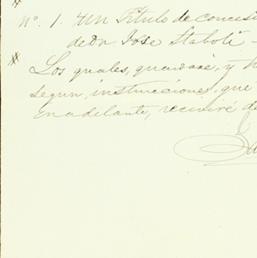 Nº. 1. Un Titulo de concesi
de Dn Jose Staboli -
Los quales, guardaré, y h
segun, instrucciones, que
en adelante, reciviré de